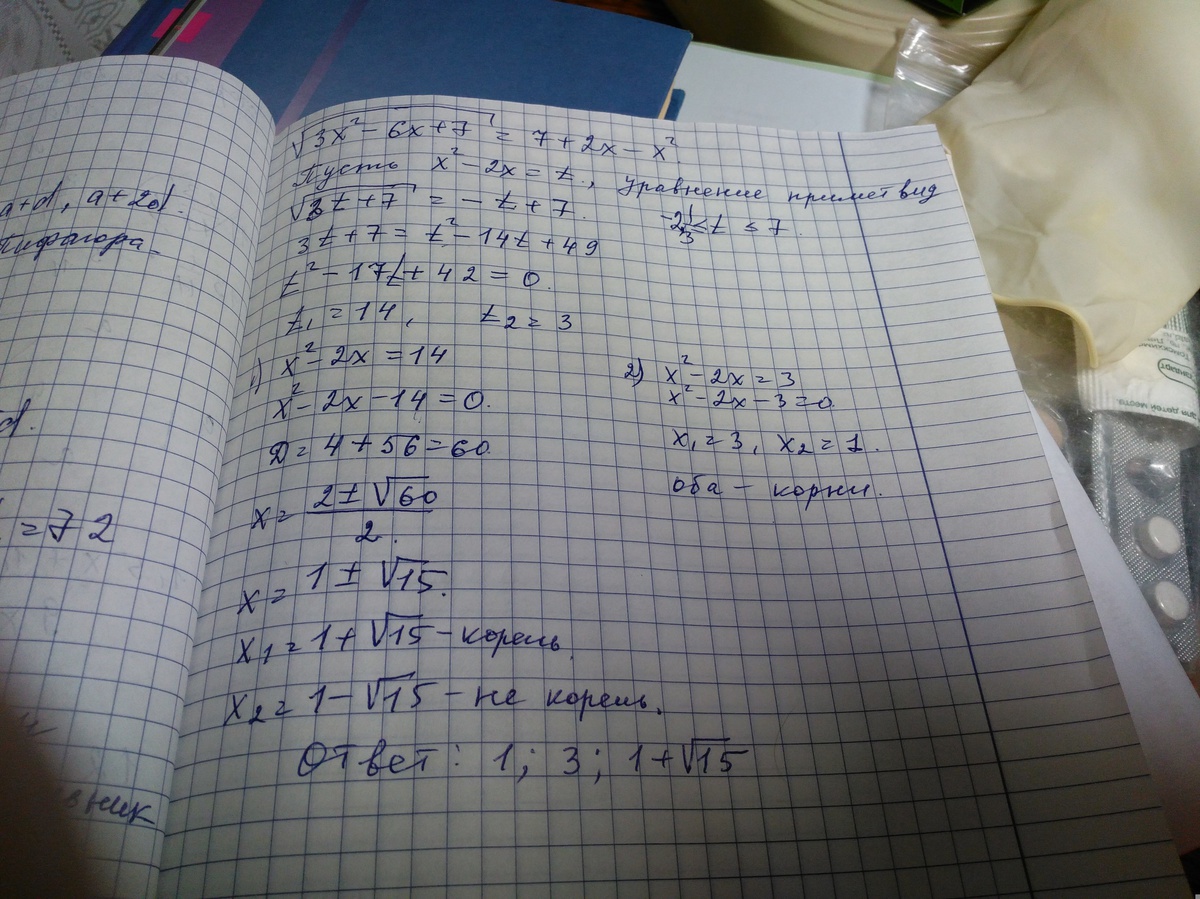 a+d, a+2d.
Пифагора-
d.
=72
√3x²-6x+7 = 7+2x-x²
Пусть x²-2x=t, уравнение примет вид
√3t+7 = -t+7. -2 1/3 ≤ t ≤ 7.
3t+7=t²-14t+49
t²-17t+42=0.
t₁=14, t₂=3
1) x²-2x=14
x²-2x-14=0.
D=4+56=60.
x= (2±√60)/2.
x=1±√15.
x₁=1+√15-корень.
x₂=1-√15-не корень.
2) x²-2x=3
x²-2x-3=0
x₁=3, x₂=1.
оба - корни.
Ответ: 1; 3; 1+√15